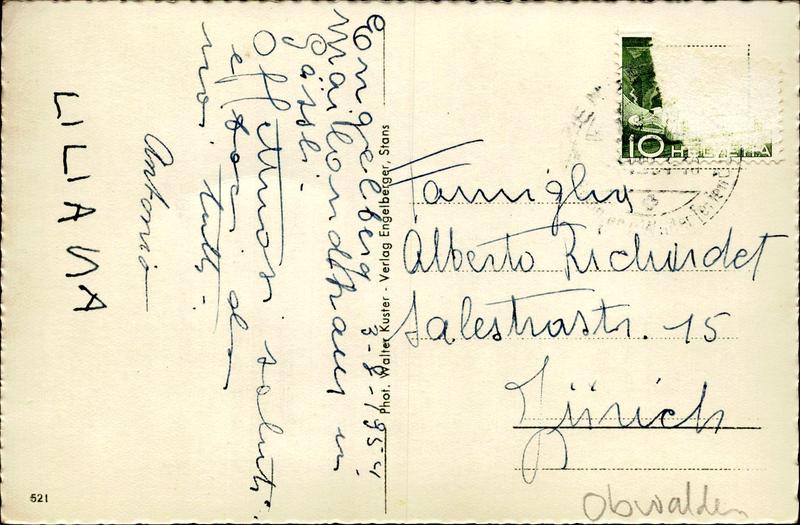 Engelberg 3-8-1954.
Mailandhaus in
Gässli.
Ottimosi saluti
e baci da
noi tutti.
Antonio
LILIANA
Phot. Walter Kuster - Verlag Engelberger, Stans
10 HELVETIA
Famiglia
Alberto Richardet
Salestrastr. 15
Zürich
Obwalden
521